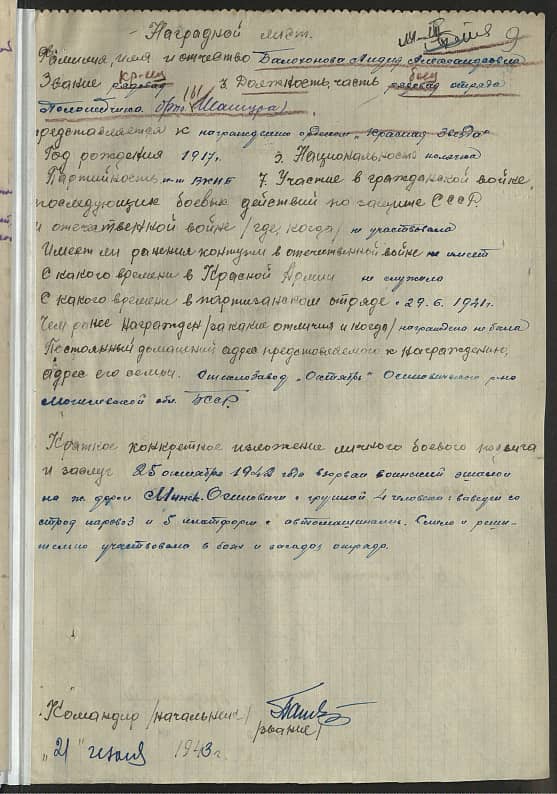 Наградной лист. 9
Фамилия, имя и отчество Балохонова Лидия Александровна
Звание рядовая 4 Должность, часть рядовая отряда
бриг. Шашура.
представляется к награждению орденом "Красная Звезда"
Год рождения 1917г. 3. Национальность полячка
Партийность 7. Участие в гражданской войне,
последующих боевых действий по защите СССР.
и отечественной войне /где, когда/ не участвовала
Имеет ли ранения контузии в отечественной войне не имеет
С какого времени в Красной Армии не служила
С какого времени в партизанском отряде с 29.6. 1941г.
Чем ранее награжден /за какие отличия и когда/ награждена не была
Постоянный домашний адрес представляемого к награждению,
адрес его семьи. Стеклозавод "Октябрь" Осиповичского р-на
Могилевской обл. БССР.
Краткое конкретное изложение личного боевого подвига
и заслуг 25 октября 1942 года взорван воинский эшелон
на ж дороге Минск. Осиповичи с группой 4 человека: выведен со
строя паровоз и 5 платформ с автомашинами. Смело и реши-
тельно участвовала в боях и засадах отряда.
Командир /начальник/
/звание/
"21" июля 1943 г.